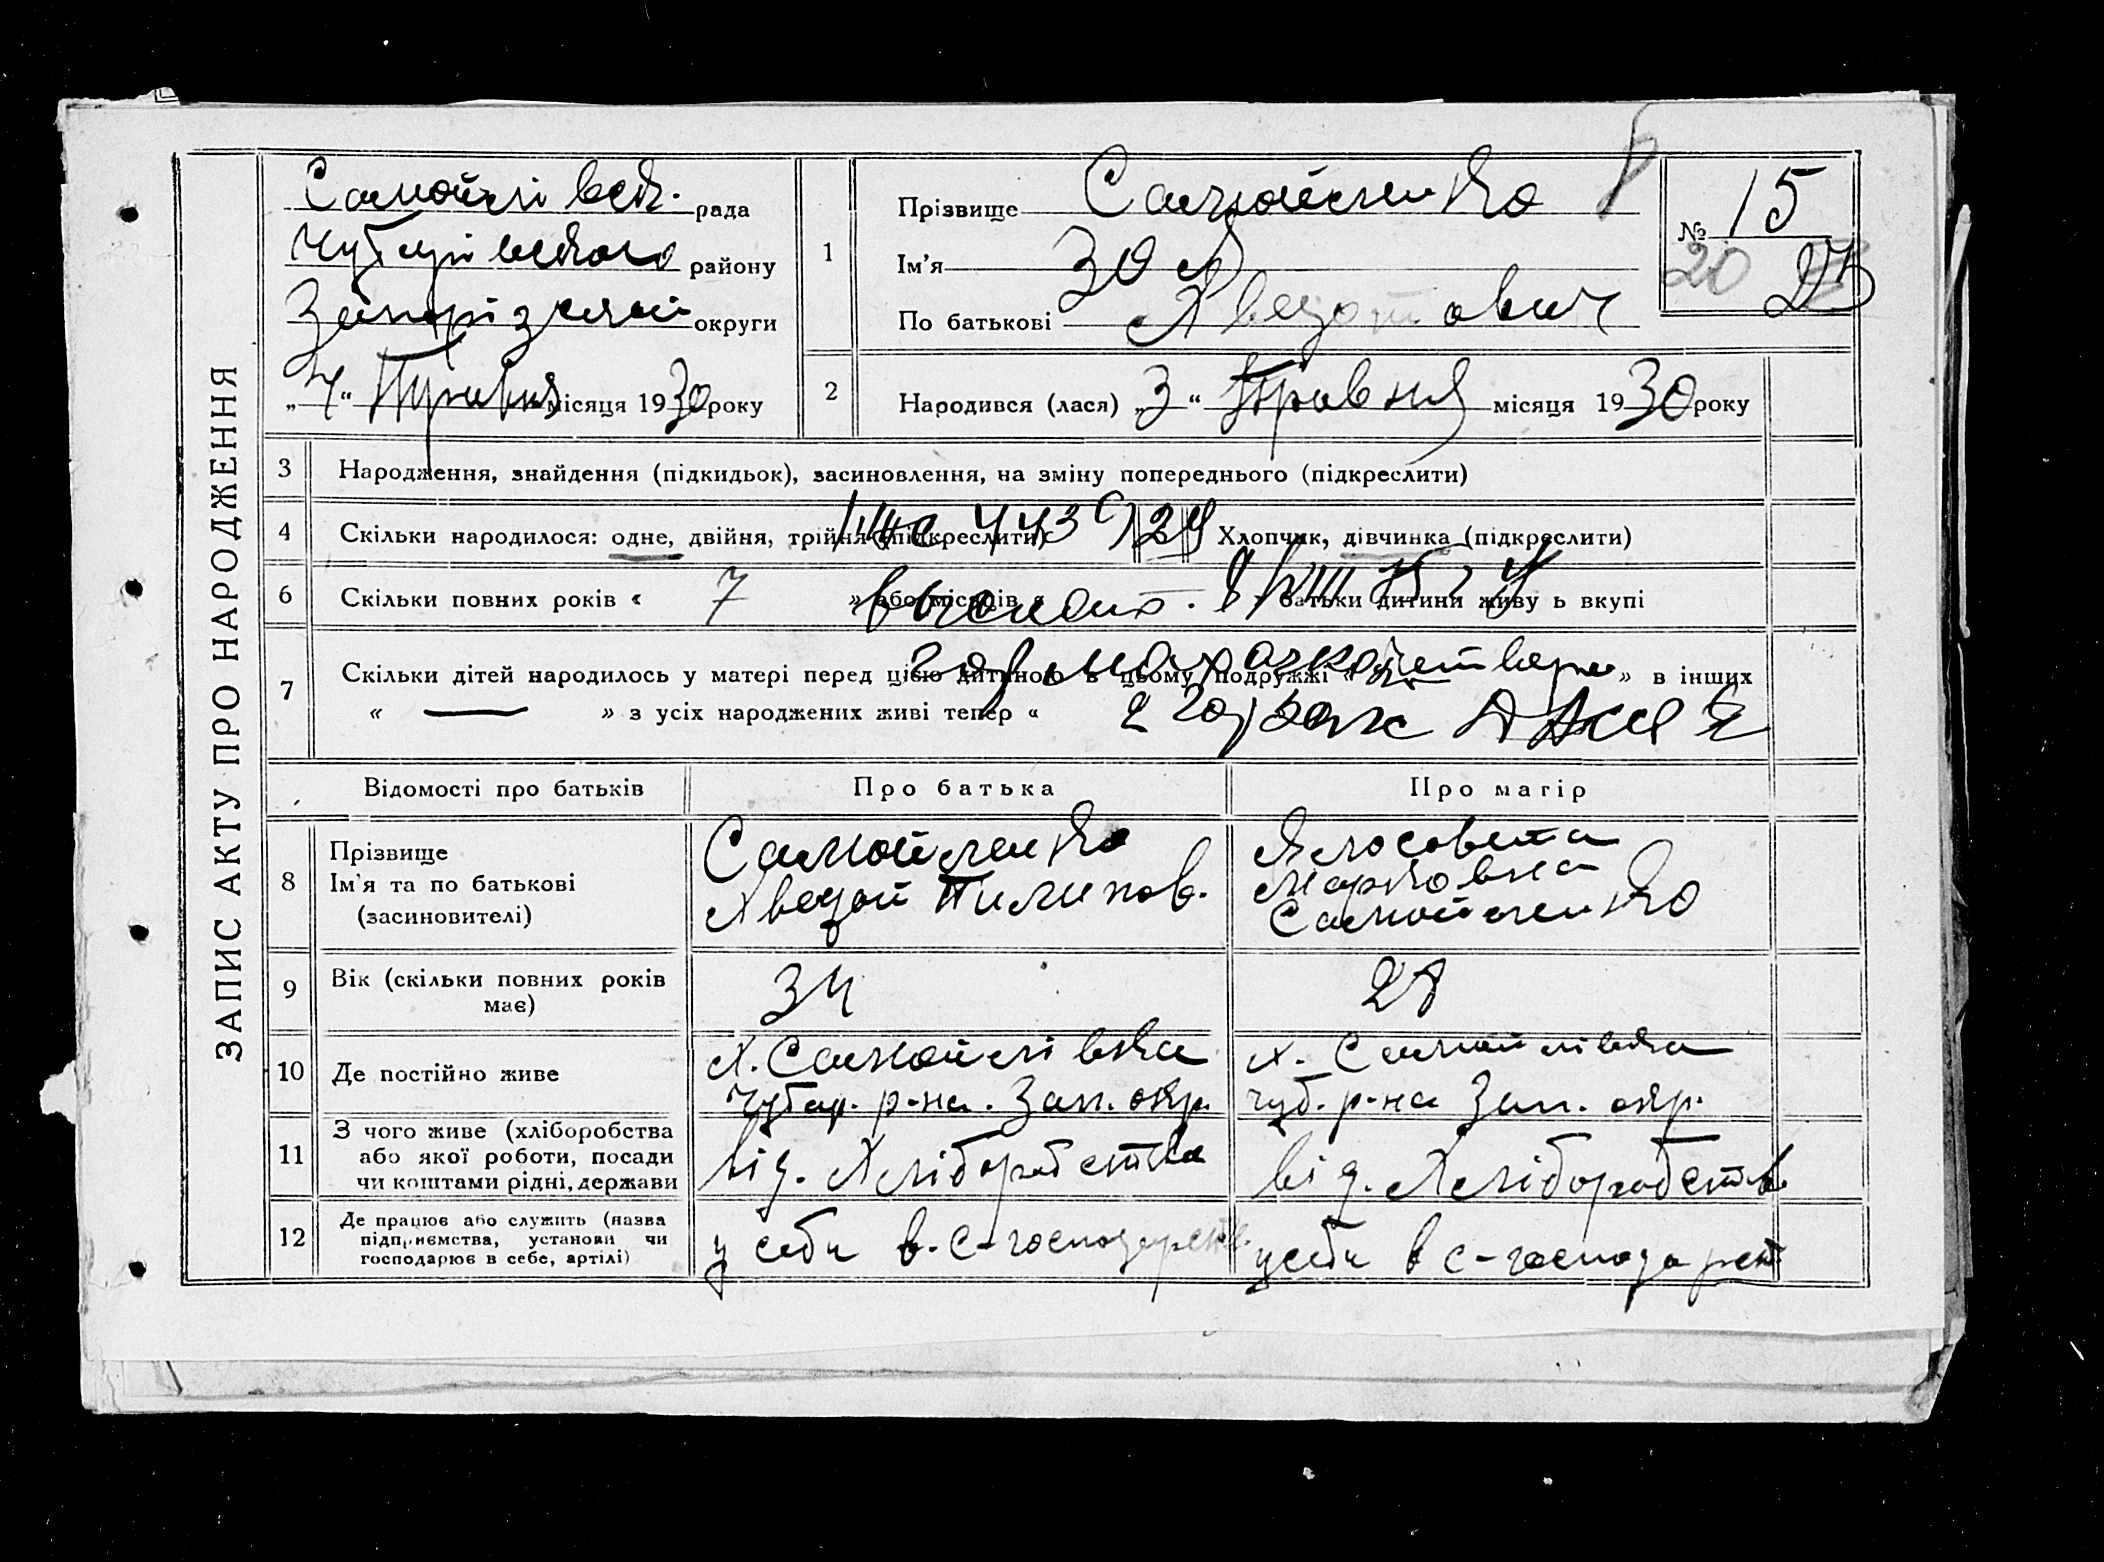 ЗАПИС АКТУ ПРО НАРОДЖЕННЯ
Самойлівськ. рада
Чубарівського району
Запорізькой округи
„4“ Травня місяця 1930 року
1
Прізвище Самойленко
Ім’я Зоя
По батькові Аведотович
№ 15
20
2
Народився (лася) „3“ Травня місяця 1930 року
3 Народження, знайдення (підкидьок), засиновлення, на зміну попереднього (підкреслити)
4 Скільки народилося: одне, двійня, трійня (підкреслити) Хлопчик, дівчинка (підкреслити)
6 Скільки повних років « 7 » або місяців « » батьки дитини живуть вкупі
7 Скільки дітей народилось у матері перед цією дитиною в цьому подружжі « » в інших
« — » з усіх народжених живі тепер «
Відомості про батьків Про батька Про матір
8 Прізвище
Ім’я та по батькові
(засиновителі)
Самойленко
Аведот Пилипов.
Марковна
Самойленко
9 Вік (скільки повних років
має)
34
28
10 Де постійно живе
х. Самойлівка
Чубар. р-на. Зап. окр.
х. Самойлівка
Чуб. р-на Зап. окр.
11 З чого живе (хліборобства
або якої роботи, посади
чи коштами рідні, держави
від. Хліборобства
від. Хліборобств
12 Де працює або служить (назва
підприємства, установи чи
господарює в себе, артілі)
у себе в. с-господарств
у себе в с-господарст.